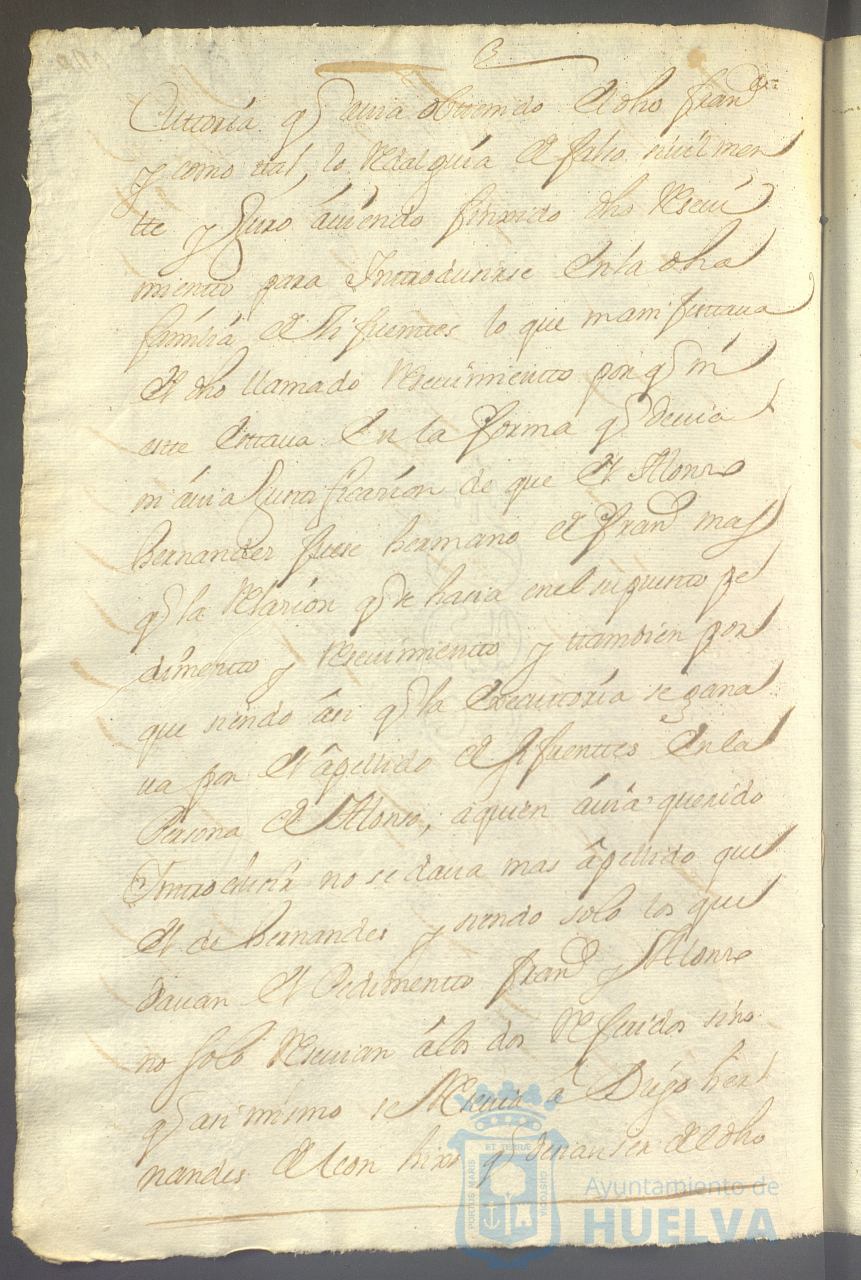 cuttoria q̃ avia obttenido el dho Fran.co
y como tal, lo redarguia de falso civilmen
tte y juro aviendo finxido dho Reseui
mientto para Inttroducirse en la dha
familia de Sifuentes lo que manifesttaua
el dho llamado Reseuimientto por q̃ ni
este esttaua en la forma q̃ deuia
ni avia Justtificacion de que el Alonso
hernandes fuese hermano de Fran.co mas
q̃ la Relacion q̃ se hacia en el supuesto pe
dimentto y Reseuimientto y ttambien por
que siendo asi q̃ la executtoria se gana
ua por el apellido de Sifuenttes en la
Persona de Alonso, a quien avia querido
Inttroducir no se daua mas apellido que
el de hernandes y siendo solo los que
dauan el Pedimentto Fran.co y Alonso
no solo Reseuian a los dos Referidos sino
q̃ asimismo se Reseuia a Diego her
nandes de Leon hixo q̃ decian ser del dho
PORTUS MARIS ET TERRÆ CUSTODIA
Ayuntamiento de
HUELVA